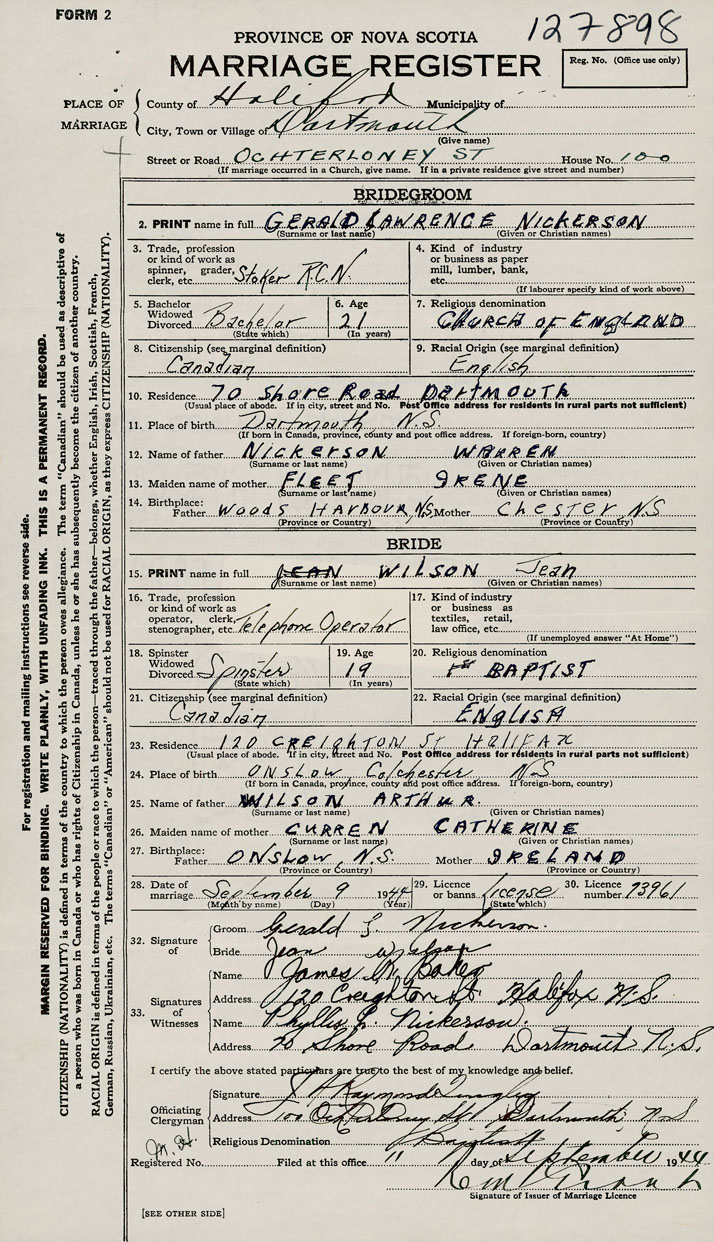 FORM 2
127898
PROVINCE OF NOVA SCOTIA
MARRIAGE REGISTER
Reg. No. (Office use only)
PLACE OF MARRIAGE
County of Halifax Municipality of
City, Town or Village of Dartmouth
(Give name)
Street or Road OCHTERLONEY ST House No. 100
(If marriage occurred in a Church, give name. If in a private residence give street and number)
BRIDEGROOM
2. PRINT name in full GERALD LAWRENCE NICKERSON
(Surname or last name) (Given or Christian names)
3. Trade, profession or kind of work as spinner, grader, clerk, etc. Stoker R.C.N.
4. Kind of industry or business as paper mill, lumber, bank, etc.
(If labourer specify kind of work above)
5. Bachelor Widowed Divorced Bachelor
(State which)
6. Age 21
(In years)
7. Religious denomination CHURCH OF ENGLAND
8. Citizenship (see marginal definition) Canadian
9. Racial Origin (see marginal definition) English
10. Residence 70 Shore Road DARTMOUTH
(Usual place of abode. If in city, street and No. Post Office address for residents in rural parts not sufficient)
11. Place of birth Dartmouth N.S.
(If born in Canada, province, county and post office address. If foreign-born, country)
12. Name of father NICKERSON WARREN
(Surname or last name) (Given or Christian names)
13. Maiden name of mother FLEET IRENE
(Surname or last name) (Given or Christian names)
14. Birthplace: Father WOODS HARBOUR, N.S. Mother CHESTER, N.S
(Province or Country) (Province or Country)
BRIDE
15. PRINT name in full JEAN WILSON Jean
(Surname or last name) (Given or Christian names)
16. Trade, profession or kind of work as operator, clerk, stenographer, etc. Telephone Operator
17. Kind of industry or business as textiles, retail, law office, etc.
(If unemployed answer "At Home")
18. Spinster Widowed Divorced Spinster
(State which)
19. Age 19
(In years)
20. Religious denomination 1st BAPTIST
21. Citizenship (see marginal definition) Canadian
22. Racial Origin (see marginal definition) ENGLISH
23. Residence 120 CREIGHTON St HALIFAX
(Usual place of abode. If in city, street and No. Post Office address for residents in rural parts not sufficient)
24. Place of birth ONSLOW, Colchester N.S
(If born in Canada, province, county and post office address. If foreign-born, country)
25. Name of father WILSON ARTHUR.
(Surname or last name) (Given or Christian names)
26. Maiden name of mother CURREN CATHERINE
(Surname or last name) (Given or Christian names)
27. Birthplace: Father ONSLOW, N.S. Mother IRELAND
(Province or Country) (Province or Country)
28. Date of marriage September 9 1944
(Month by name) (Day) (Year)
29. Licence or banns license
(State which)
30. Licence number 73961
32. Signature of
Groom Gerald L. Nickerson.
Bride Jean Wilson
33. Signatures of Witnesses
Name James M. Baker
Address 120 Creighton St. Halifax N.S.
Name Phyllis L. Nickerson
Address 70 Shore Road Dartmouth N.S.
I certify the above stated particulars are true to the best of my knowledge and belief.
Officiating Clergyman
Signature Raymond
Address 100 Ochterloney St Dartmouth, N.S
Religious Denomination Baptist
Registered No. Filed at this office 11 day of September 1944
Signature of Issuer of Marriage Licence
[SEE OTHER SIDE]
For registration and mailing instructions see reverse side.
MARGIN RESERVED FOR BINDING. WRITE PLAINLY, WITH UNFADING INK. THIS IS A PERMANENT RECORD.
CITIZENSHIP (NATIONALITY) is defined in terms of the country to which the person owes allegiance. The term "Canadian" should be used as descriptive of
a person who was born in Canada or who has rights of Citizenship in Canada, unless he or she has subsequently become the citizen of another country.
RACIAL ORIGIN is defined in terms of the people or race to which the person—traced through the father—belongs, whether English, Irish, Scottish, French,
German, Russian, Ukrainian, etc. The terms "Canadian" or "American" should not be used for RACIAL ORIGIN, as they express CITIZENSHIP (NATIONALITY).